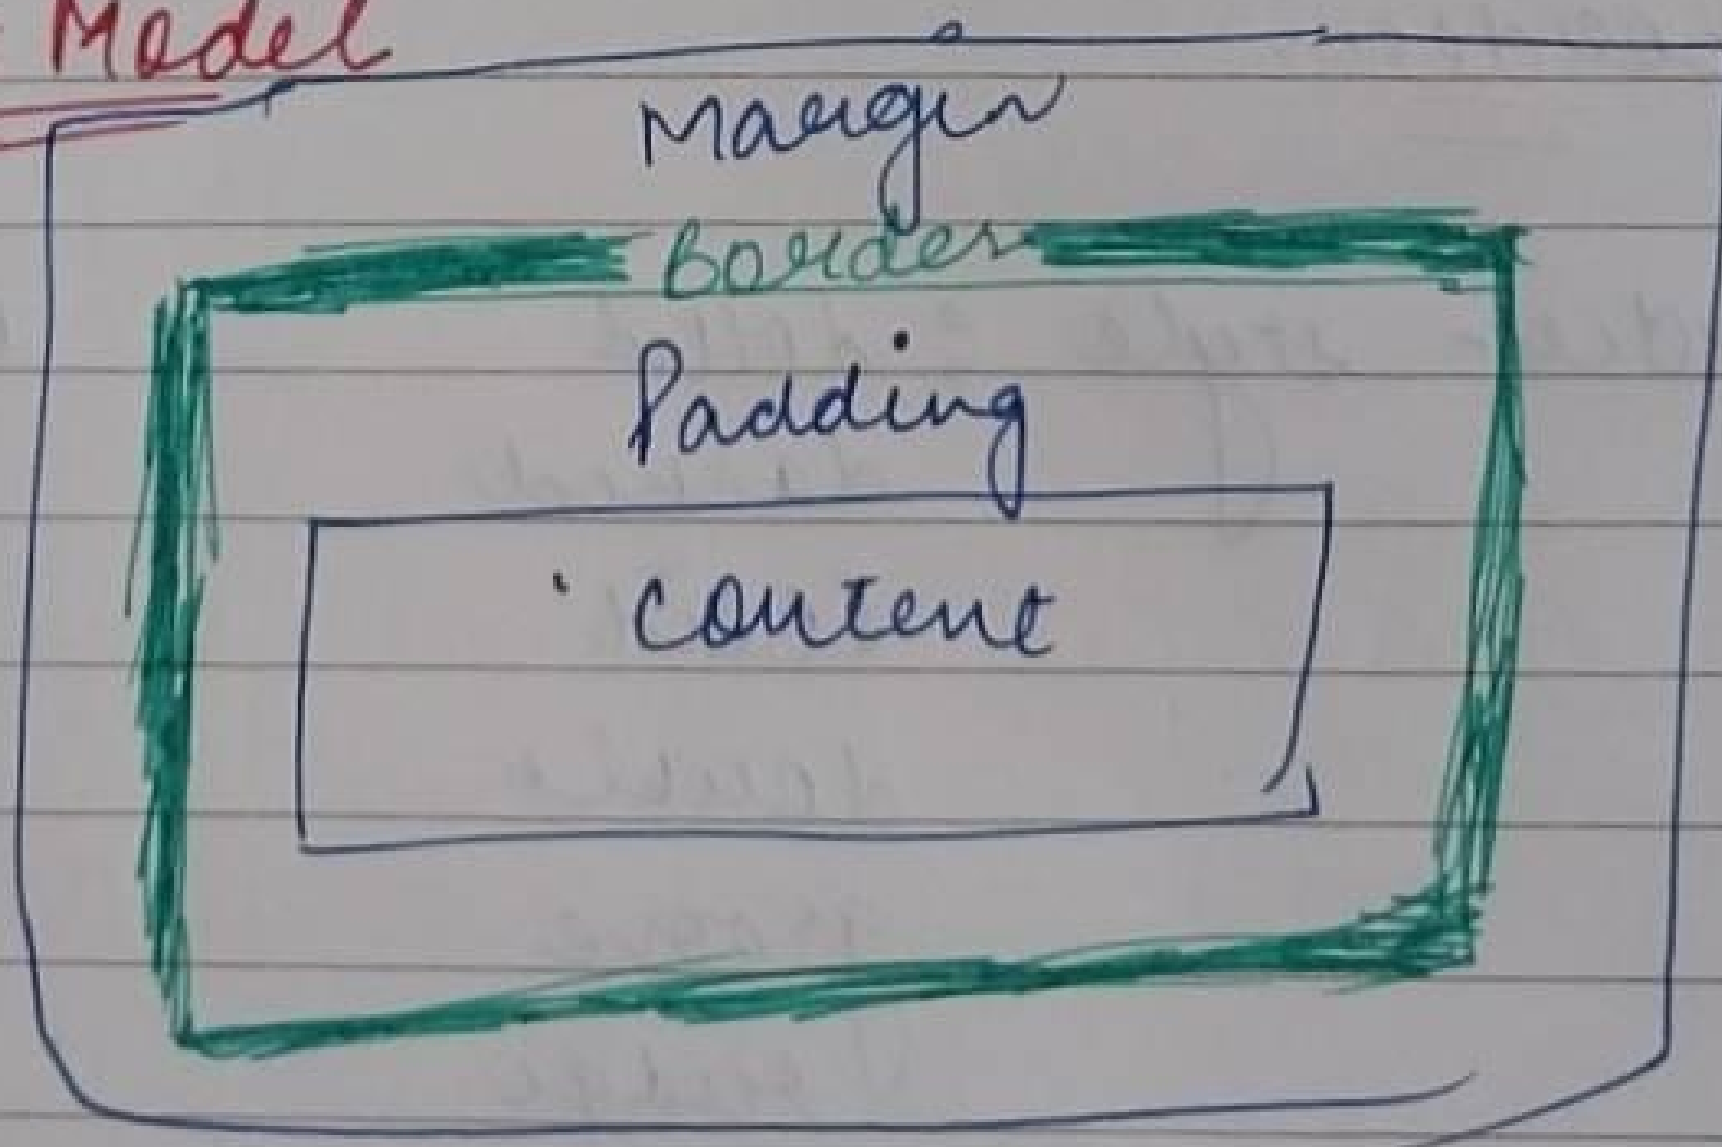 Model
Margin
Border
Padding
Content